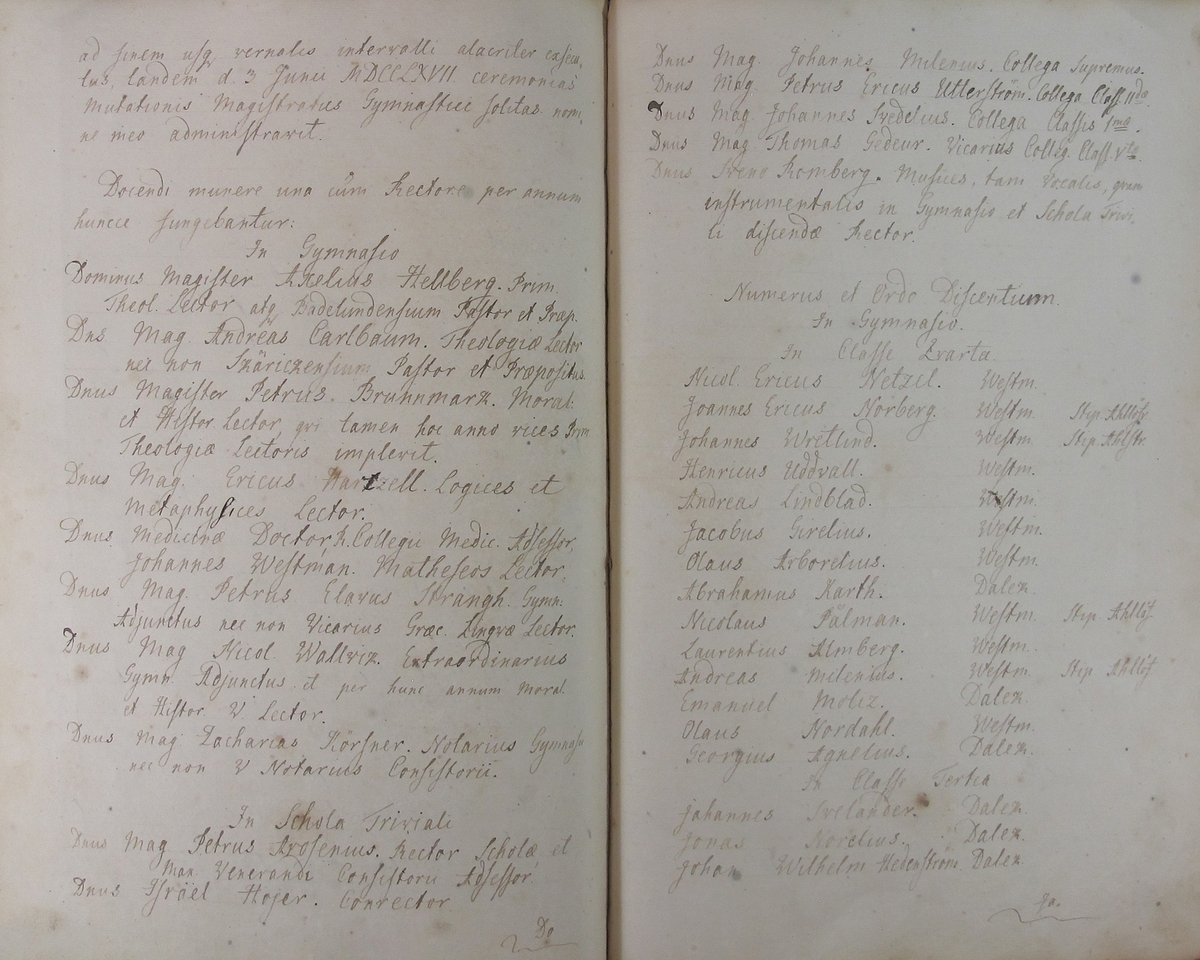 ad finem usq vernalis intervalli alacriter exsecu,
tus, tandem d. 3 Junii MDCCLXVII ceremonias
mutationis Magistratus Gymnastici solitas nomi,
ne meo administravit.
Docendi munere una cum Rectore per annum
huncce fungebantur:
In Gymnasio
Dominus Magister Axelius Hellberg. Prim.
Theol. Lector atq Badelundensium Pastor et Præp.
Dns Mag. Andreas Carlbaum. Theologiæ Lector
nec non Pastor et Præpositus.
Dnus Magister Petrus. Brunnmark. Moral.
et Histor Lector, qvi tamen hoc anno vices Prim
Theologiæ Lectoris implevit.
Dnus Mag. Ericus Hartzell. Logices et
Metaphysices Lector.
Dnus Medicinæ Doctor, R. Collegii Medic. Adsessor,
Johannes Westman. Matheseos Lector.
Dnus Mag. Petrus Elavus Strångh. Gymn:
Adjunctus nec non Vicarius Græc. Lingvæ Lector.
Dnus Mag Nicol. Wallviz. Extraordinarius
Gymn. Adjunctus et per hunc annum Moral.
et Histor V Lector.
Dnus Mag Zacharias Korsner. Notarius Gymnasii
nec non V Notarius Consistorii.
In Schola Triviali
Dnus Mag Petrus Arosenius. Rector Scholæ et
Max. Venerandi Consistorii Adsessor
Dnus Israël Hojer. Conrector
Do
Dnus Mag. Johannes Milenius. Collega Supremus.
Dnus Mag. Petrus Ericus Utterström. Collega Class. IIdæ.
Dnus Mag. Johannes Svedelius. Collega Classis Imæ.
Dnus Mag. Thomas Gedeur. Vicarius Colleg. Class. Vtæ.
Dnus Sveno Romberg. Musices, tam Vocalis, qvam
instrumentalis in Gymnasio et Schola Trivi,
li discendæ Rector.
Numerus et Ordo Discentium.
In Gymnasio.
In Classe Qvarta
Nicol. Ericus Netzel. Westm.
Joannes Ericus Norberg. Westm. Stip. Ahllöf.
Johannes Wretlind. Westm. Stip. Ahlstr.
Henricus Uddvall. Westm.
Andreas Lindblad. Westm.
Jacobus Girelius. Westm.
Olaus Arborelius. Westm.
Abrahamus Karth. Dalek.
Nicolaus Pålman. Westm. Stip. Ahllöf.
Laurentius Almberg. Westm.
Andreas Milenius. Westm. Stip. Ahllöf.
Emanuel Moliz. Dalek.
Olaus Nordahl. Westm.
Georgius Agnelius. Dalek.
In Classe Tertia
Johannes Svelander. Dalek.
Jonas Norelius. Dalek.
Johan Wilhelm Hedenström Dalek.
Jo.